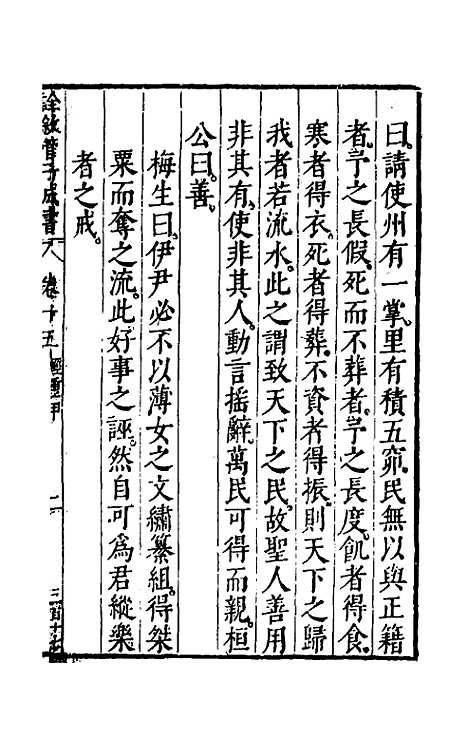 曰。請使州有一掌。里有積五窌。民無以與正籍
者。予之長假。死而不葬者。予之長度。飢者得食。
寒者得衣。死者得葬。不資者得振。則天下之歸
我者若流水。此之謂致天下之民。故聖人善用
非其有。使非其人。動言搖辭。萬民可得而親。桓
公曰。善。
梅生曰。伊尹必不以薄女之文繡纂組。得桀
粟而奪之流。此好事之誣。然自可為君縱樂
者之戒。
詮敘管子成書 卷十五 輕重甲 二